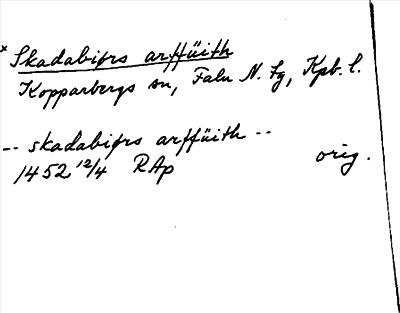 * Skadabijrs arffüith
Kopparbergs sn, Falu N. tg, Kpb. l.
-- skadabijrs arffüith --
1452 12/4 RAp orig.